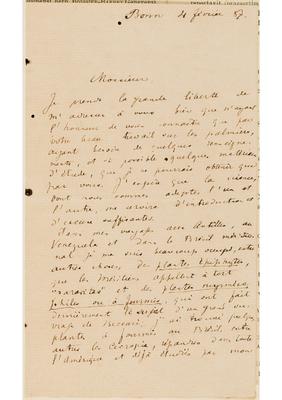 Bonn 4 février 87.
Monsieur
Je prends la grande liberté de
m'adresser à vous bien que n'ayant
l'honneur de vous connaître que par
votre beau travail sur les palmiers,
ayant besoin de quelques renseigne-
ments, et si possible quelques matériaux
d'étude, que je ne pourrais obtenir que
par vous. J'espère que la science,
dont nous sommes adeptes l'un et
l'autre, me servira d'introduction et
d'excuse suffisantes.
Dans mes voyages aux Antilles, au
Venezuela et dans le Brésil
je me suis beaucoup occupé, entre
autres choses, de plantes épiphytes,
que les Brésiliens appellent à tort
"parasitas" et de plantes myrméco-
philes ou à fourmis, qui ont fait
dernièrement le sujet d'un grand ou-
vrage de Beccari. J'ai trouvé quelques
plantes à fourmis au Brésil, entre
autres les Cecropia, répandues dans toute
l'Amérique et déjà étudiés par mon